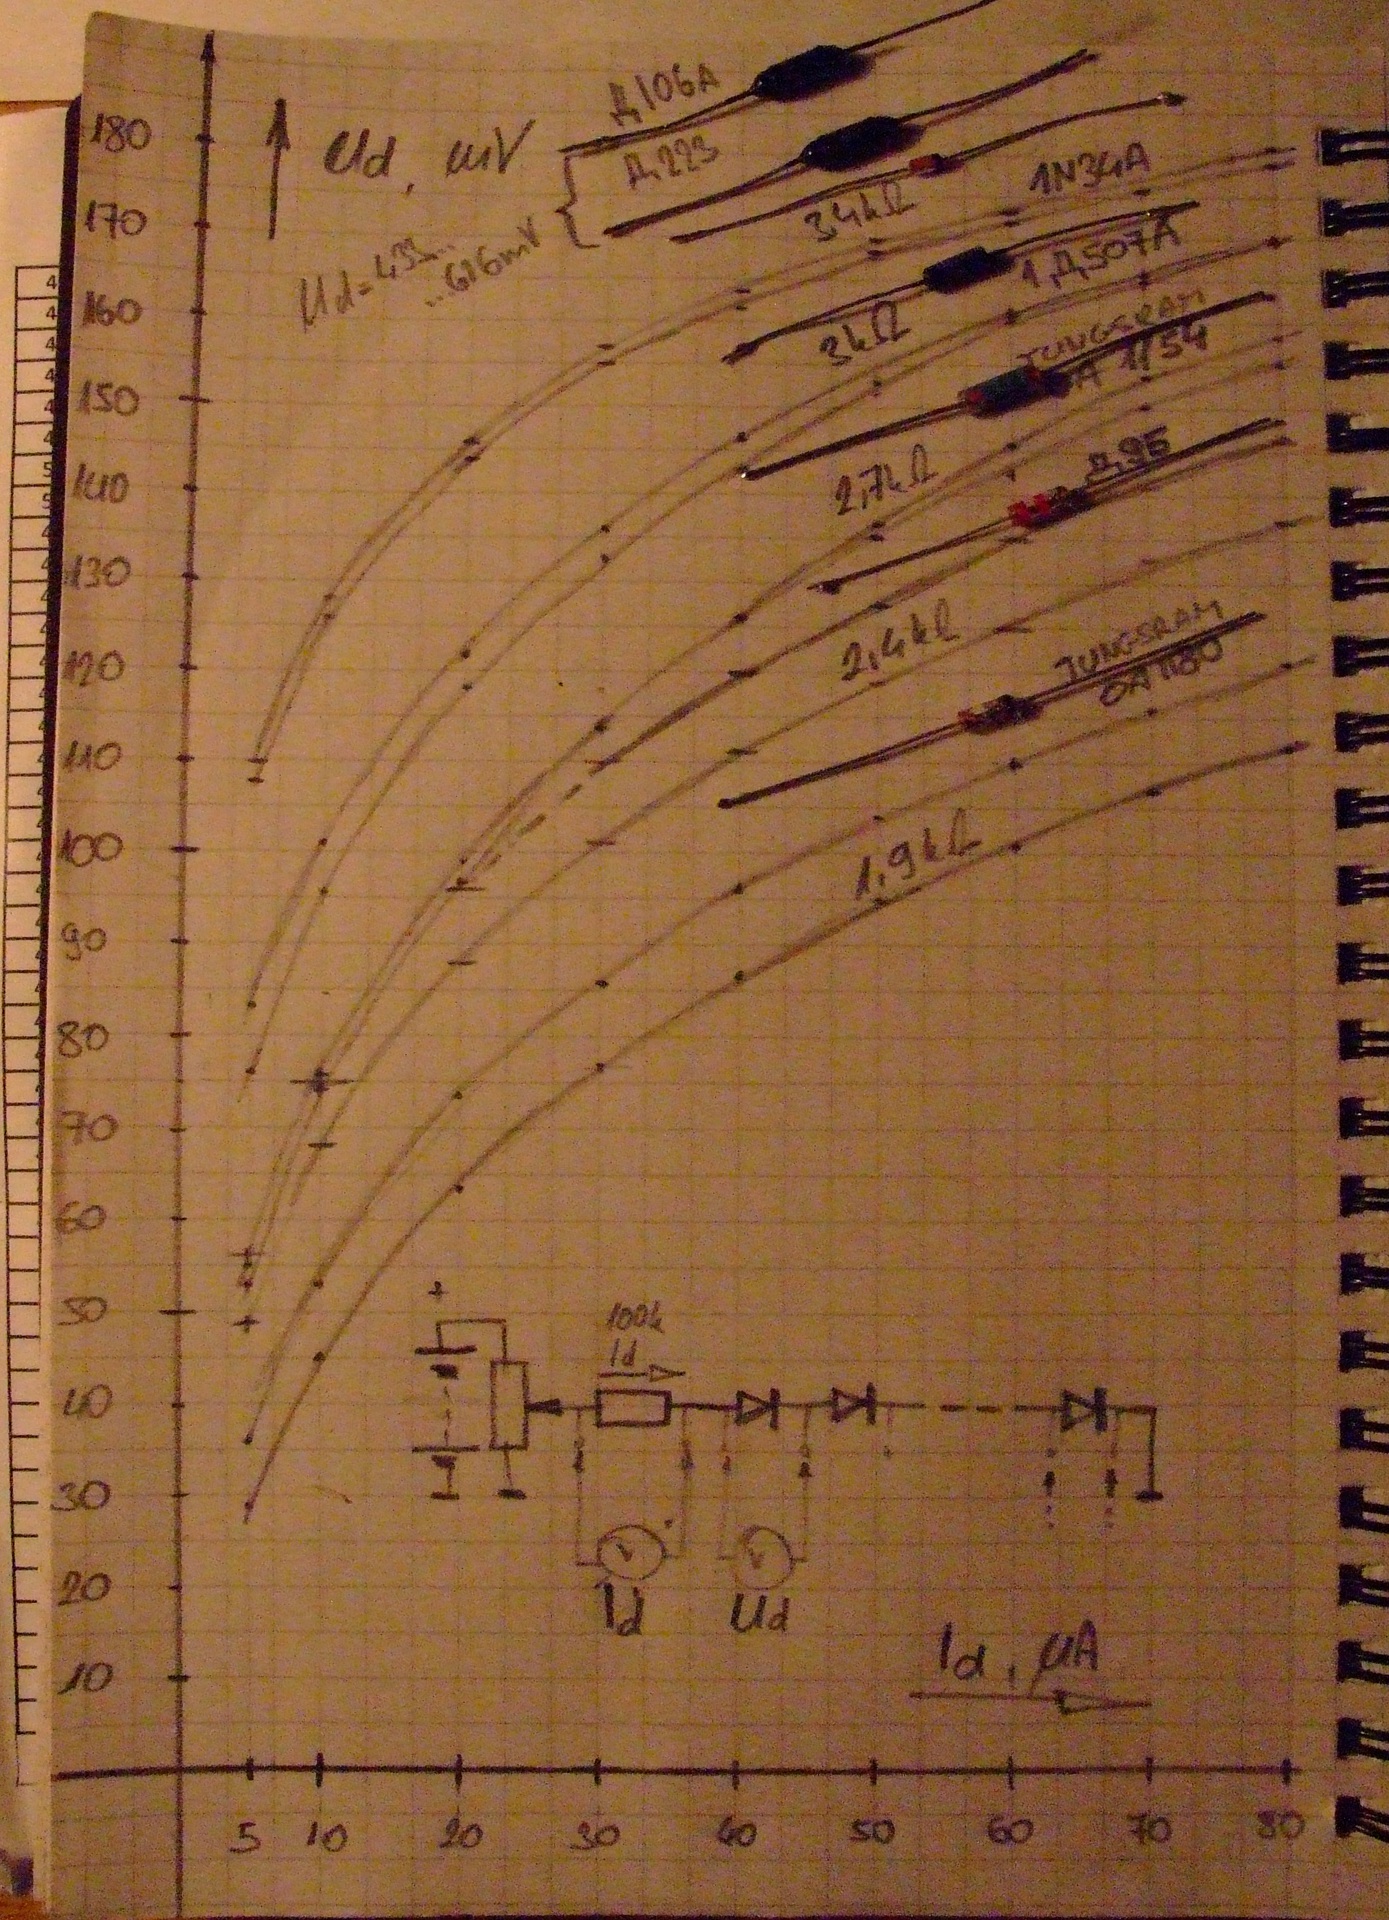 180
170
160
150
140
130
120
110
100
90
80
70
60
50
40
30
20
10
Ud, mV
Д106A
Д223
1N34A
34kΩ
1Д507A
3kΩ
TUNGSRAM
1154
2,7kΩ
Д9Б
2,4kΩ
TUNGSRAM
OA1180
1,9kΩ
+
100k
Id
V V
Id Ud
Id, μA
5 10 20 30 40 50 60 70 80